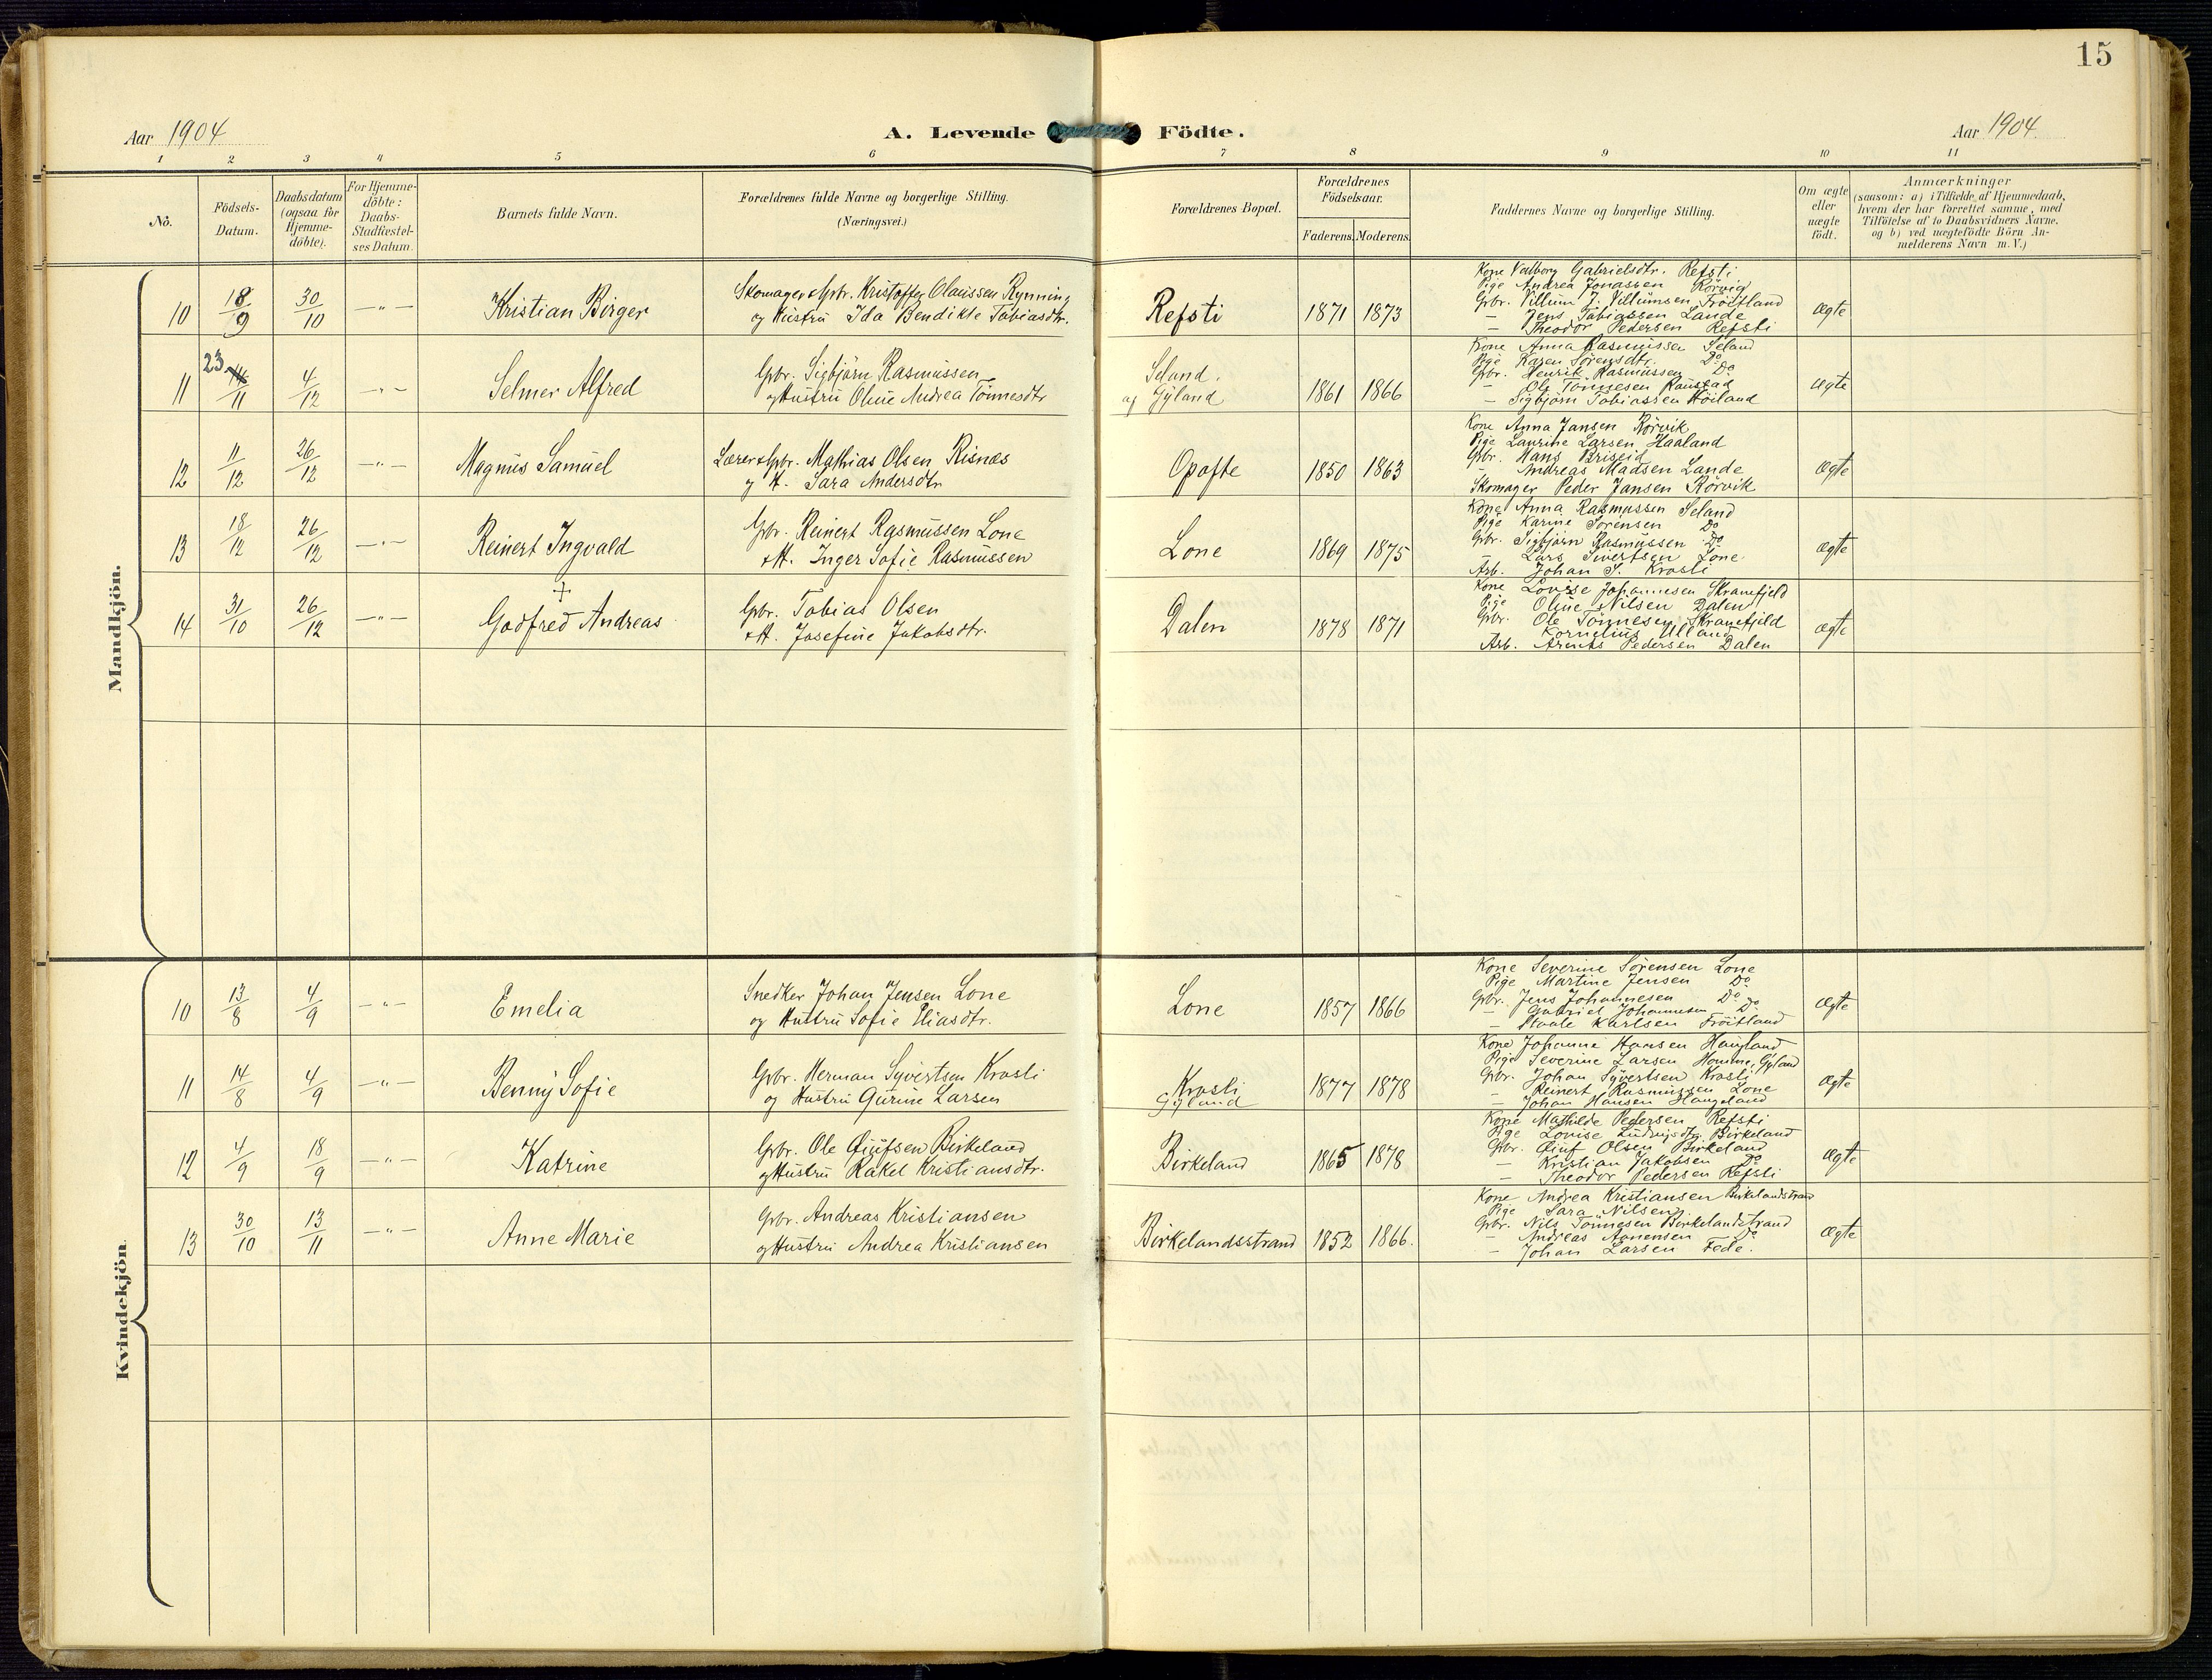 15
Aar 1904
A. Levende Födte.
Aar 1904
1 2 3 4 5 6 7 8 9 10 11
No. Födsels-Datum. Daabsdatum (ogsaa for Hjemmedöbte). For Hjemmedöbte: Daabs-Stadfæstelses Datum. Barnets fulde Navn. Forældrenes fulde Navne og borgerlige Stilling. (Næringsvei.) Forældrenes Bopæl. Forældrenes Födselsaar. Faderens. Moderens. Faddernes Navne og borgerlige Stilling. Om ægte eller uægte födt. Anmærkninger (saasom: a) i Tilfælde af Hjemmedaab, hvem der har forrettet samme, med Tilföielse af to Daabsvidners Navne. og b) ved uægtefödte Börn Anmelderens Navn m.V.)
Mandkjön.
10 18/9 30/10 —"— Kristian Birger
Skomager & Gbr. Kristoffer Olaussen Rynning
og Hustru Ida Bendikte Tobiasdtr.
Refsti 1871 1873
Kone Valborg Gabrielsdtr. Refsti
Pige Andrea Jonassen Rörvig
Gbr. Villum J. Villumsen Fröitland
— Jens Tobiassen Lande
— Theodor Pedersen Refsti
Ægte
11 23 14/11 4/12 —"— Selmer Alfred
Gbr. Sigbjörn Rasmussen
og Hustru Oline Andrea Tönnesdtr
Seland
af Gyland
1861 1866
Kone Anna Rasmussen Seland
Pige Karen Sörensdtr. Do
Gbr. Henrik Rasmussen Do
— Ole Tönnesen Raustad
— Sigbjörn Tobiassen Höiland
Ægte
12 11/12 26/12 —"— Magnus Samuel
Lærer & Gbr. Mathias Olsen Risnæs
og H. Sara Andersdtr
Opofte 1850 1863
Kone Anna Jansen Rörvik
Pige Laurine Larsen Haaland
Gbr. Hans Briseid
— Andreas Madsen Lande
Skomager Peder Jansen Rörvik
Ægte
13 18/12 26/12 —"— Reinert Ingvald
Gbr. Reinert Rasmussen Lone
& H. Inger Sofie Rasmussen
Lone 1869 1875
Kone Anna Rasmussen Seland
Pige Karine Sörensen Do
Gbr. Sigbjörn Rasmussen Do
— Lars Sivertsen Lone
Arb. Johan S. Krosli
Ægte
14 31/10 26/12 —"— Godfred Andreas
Gbr. Tobias Olsen
& H. Josefine Jakobsdtr.
Dalen 1878 1871
Kone Lovise Johannesen Skranefjeld
Pige Oline Nilsen Dalen
Gbr. Ole Tönnesen Skranefjeld
Kornelius Ulland
Arb. Pedersen Dalen
Ægte
Kvindekjön.
10 13/8 4/9 —"— Emelia
Snedker Johan Jensen Lone
og Hustru Sofie Eliasdtr.
Lone 1857 1866
Kone Severine Sörensen Lone
Pige Martine Jensen Do
Gbr. Jens Johannesen Do
— Gabriel Johannesen Do
— Staale Karlsen Fröitland
Ægte
11 14/8 4/9 —"— Benny Sofie
Gbr. Herman Syvertsen Krosli
og Hustru Gurine Larsen
Krosli
Gyland
1877 1878
Kone Johanne Hansen Haugland
Pige Severine Larsen Homme, Gyland
Gbr. Johan Syvertsen Krosli
— Reinert Rasmussen Lone
— Johan Hansen Haugeland
Ægte
12 4/9 18/9 —"— Katrine
Gbr. Ole Birkeland
og Hustru Rakel Kristiansdtr.
Birkeland 1865 1878
Kone Mathilde Pedersen Refsti
Pige Louise Ludvigsdtr. Birkeland
Gbr. Olsen Birkeland
— Kristian Jakobsen Do
— Theodor Pedersen Refsti
Ægte
13 30/10 13/11 —"— Anne Marie
Gbr. Andreas Kristiansen
og Hustru Andrea Kristiansen
Birkelandsstrand 1852 1866.
Kone Andrea Kristiansen Birkelandstrand
Pige Sara Nilsen
Gbr. Nils Tönnesen Birkelandstrand
— Andreas Aanensen Do
— Johan Larsen Fede.
Ægte